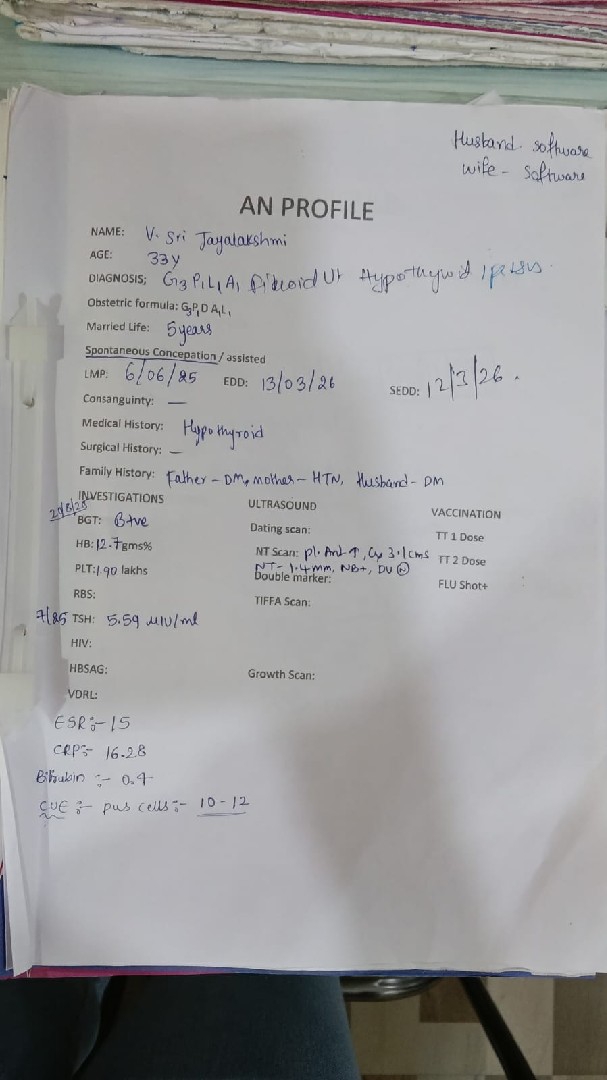 Husband - software
wife - Software
AN PROFILE
NAME: V. Sri Jayalakshmi
AGE: 33y
DIAGNOSIS; G3 P1 L1 A1 Ut Hypothyroid
Obstetric formula: G3P1D A1L1
Married Life: 5 years
Spontaneous Concepation / assisted
LMP: 6/06/25 EDD: 13/03/26 SEDD: 12/3/26.
Consanguinty: —
Medical History: Hypothyroid
Surgical History: —
Family History: Father - DM, mother - HTN, Husband - DM
INVESTIGATIONS ULTRASOUND VACCINATION
BGT: B+ve Dating scan: TT 1 Dose
HB: 12.7gms% NT Scan: pl. Ant ↑, Cx 3.1cms TT 2 Dose
NT - 1.4mm, NB+, DV
PLT: 1.90 lakhs Double marker: FLU Shot+
RBS: TIFFA Scan:
7/25 TSH: 5.59 µIU/ml
HIV:
HBSAG: Growth Scan:
VDRL:
ESR :- 15
CRP :- 16.28
:- 0.4
CUE :- pus cells :- 10-12